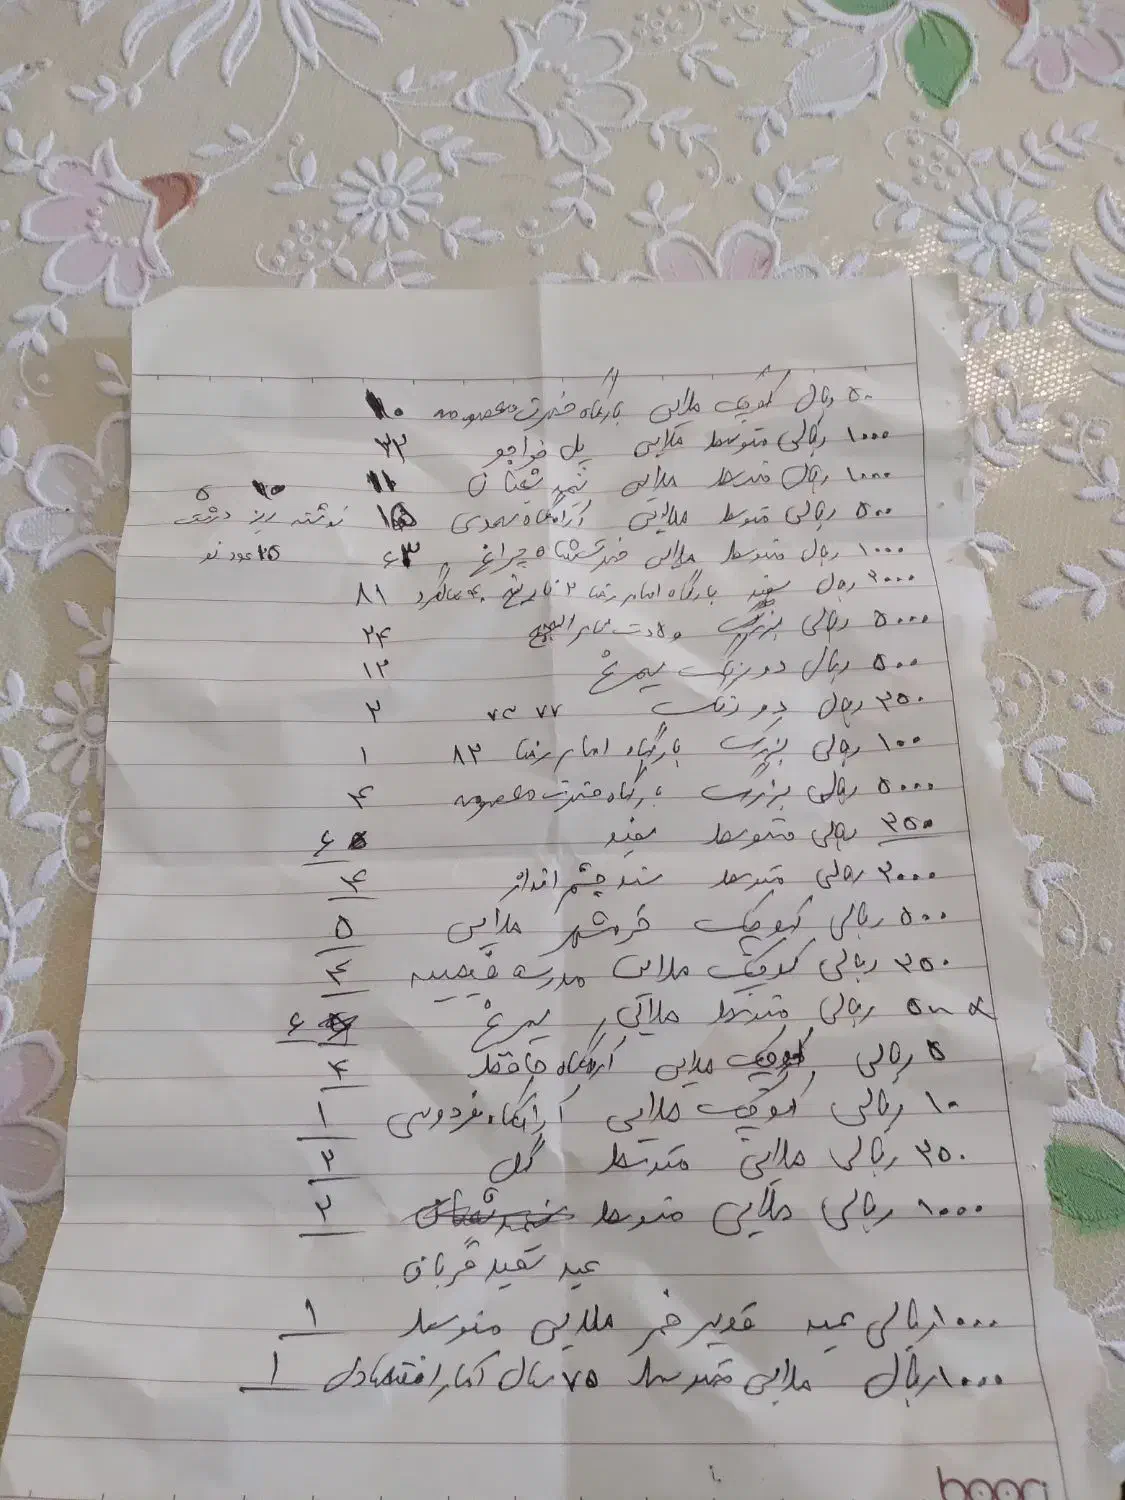 ۵۰ ریال کوچک طلایی بارگاه حضرت معصومه ۱۰
۱۰۰۰ ریالی متوسط طلایی پل خواجو ۳۳
۱۰۰۰ ریال متوسط طلایی نیمه شعبان ۱۱
۵۰۰ ریالی متوسط طلایی آرامگاه سعدی ۱۵ نوشته ریز درشت ۱۰ ۵
۱۰۰۰ ریال متوسط طلایی حضرت شاه چراغ ۶۳
۲۰۰۰ ریال سفید بارگاه امام رضا ۲ تاریخ ۴۰ سالگرد ۸۱
۵۰۰۰ ریالی بزرگ ولادت ۲۴
۵۰۰ ریال دو رنگ سیمرغ ۱۲
۲۵۰ ریال دو رنگ ۷۷ ۲
۱۰۰ ریالی بزرگ بارگاه امام رضا ۸۳ ۱
۵۰۰۰ ریالی بزرگ بارگاه حضرت معصومه ۴
۲۵۰ ریالی متوسط سفید ۶
۲۰۰۰ ریالی متوسط سند چشم انداز ۴
۵۰۰ ریالی کوچک خرمشهر طلایی ۵
۲۵۰ ریالی کوچک طلایی مدرسه فیضیه ۴
۵۰۰ ریالی متوسط طلایی سیمرغ ۶
۵ ریالی کوچک طلایی آرامگاه حافظ ۴
۱۰ ریالی کوچک طلایی آرامگاه فردوسی ۱
۲۵۰ ریالی طلایی متوسط گل ۲
۱۰۰۰ ریالی طلایی متوسط ۲
عید سعید قربان
۱۰۰۰ ریالی عید غدیر خم طلایی متوسط ۱
۱۰۰۰ ریال طلایی متوسط ۷۵ سال آمار اقتصادی ۱